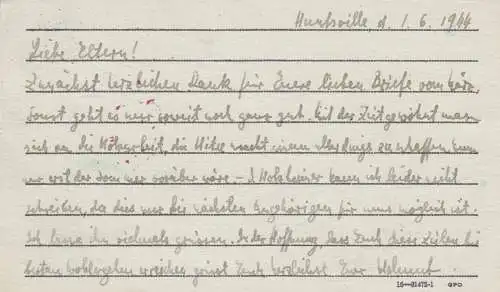 Huntsville, d. 1. 6. 1944
Liebe Eltern!
Zunächst herzlichen Dank für Euere lieben Briefe vom März.
Sonst geht es mir soweit noch ganz gut. Mit der Zeit gewöhnt man
sich an die Holzarbeit, die Hitze macht einem allerdings zu schaffen, wenn
nur erst der Sommer vorüber wäre. - J. Holsheimer kann ich leider nicht
schreiben, da dies nur bei nächsten Angehörigen für uns möglich ist.
Ich lasse ihn vielmals grüssen. In der Hoffnung, dass Euch diese Zeilen bei
bestem Wohlergehen erreichen grüsst Euch herzlichst Euer Helmut.
16—81475-1 GPO